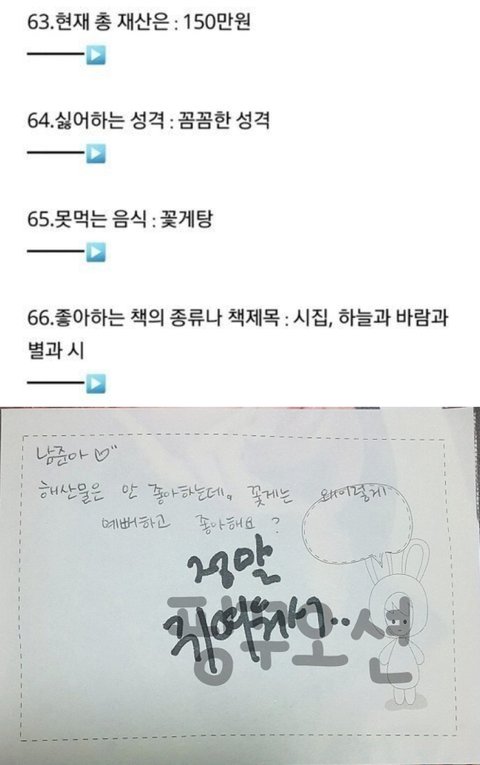 63.현재 총 재산은 : 150만원
64.싫어하는 성격 : 꼼꼼한 성격
65.못먹는 음식 : 꽃게탕
66.좋아하는 책의 종류나 책제목 : 시집, 하늘과 바람과
별과 시
남준아♡
해산물은 안 좋아하는데, 꽃게는 왜이렇게
예뻐하고 좋아해요?
정말